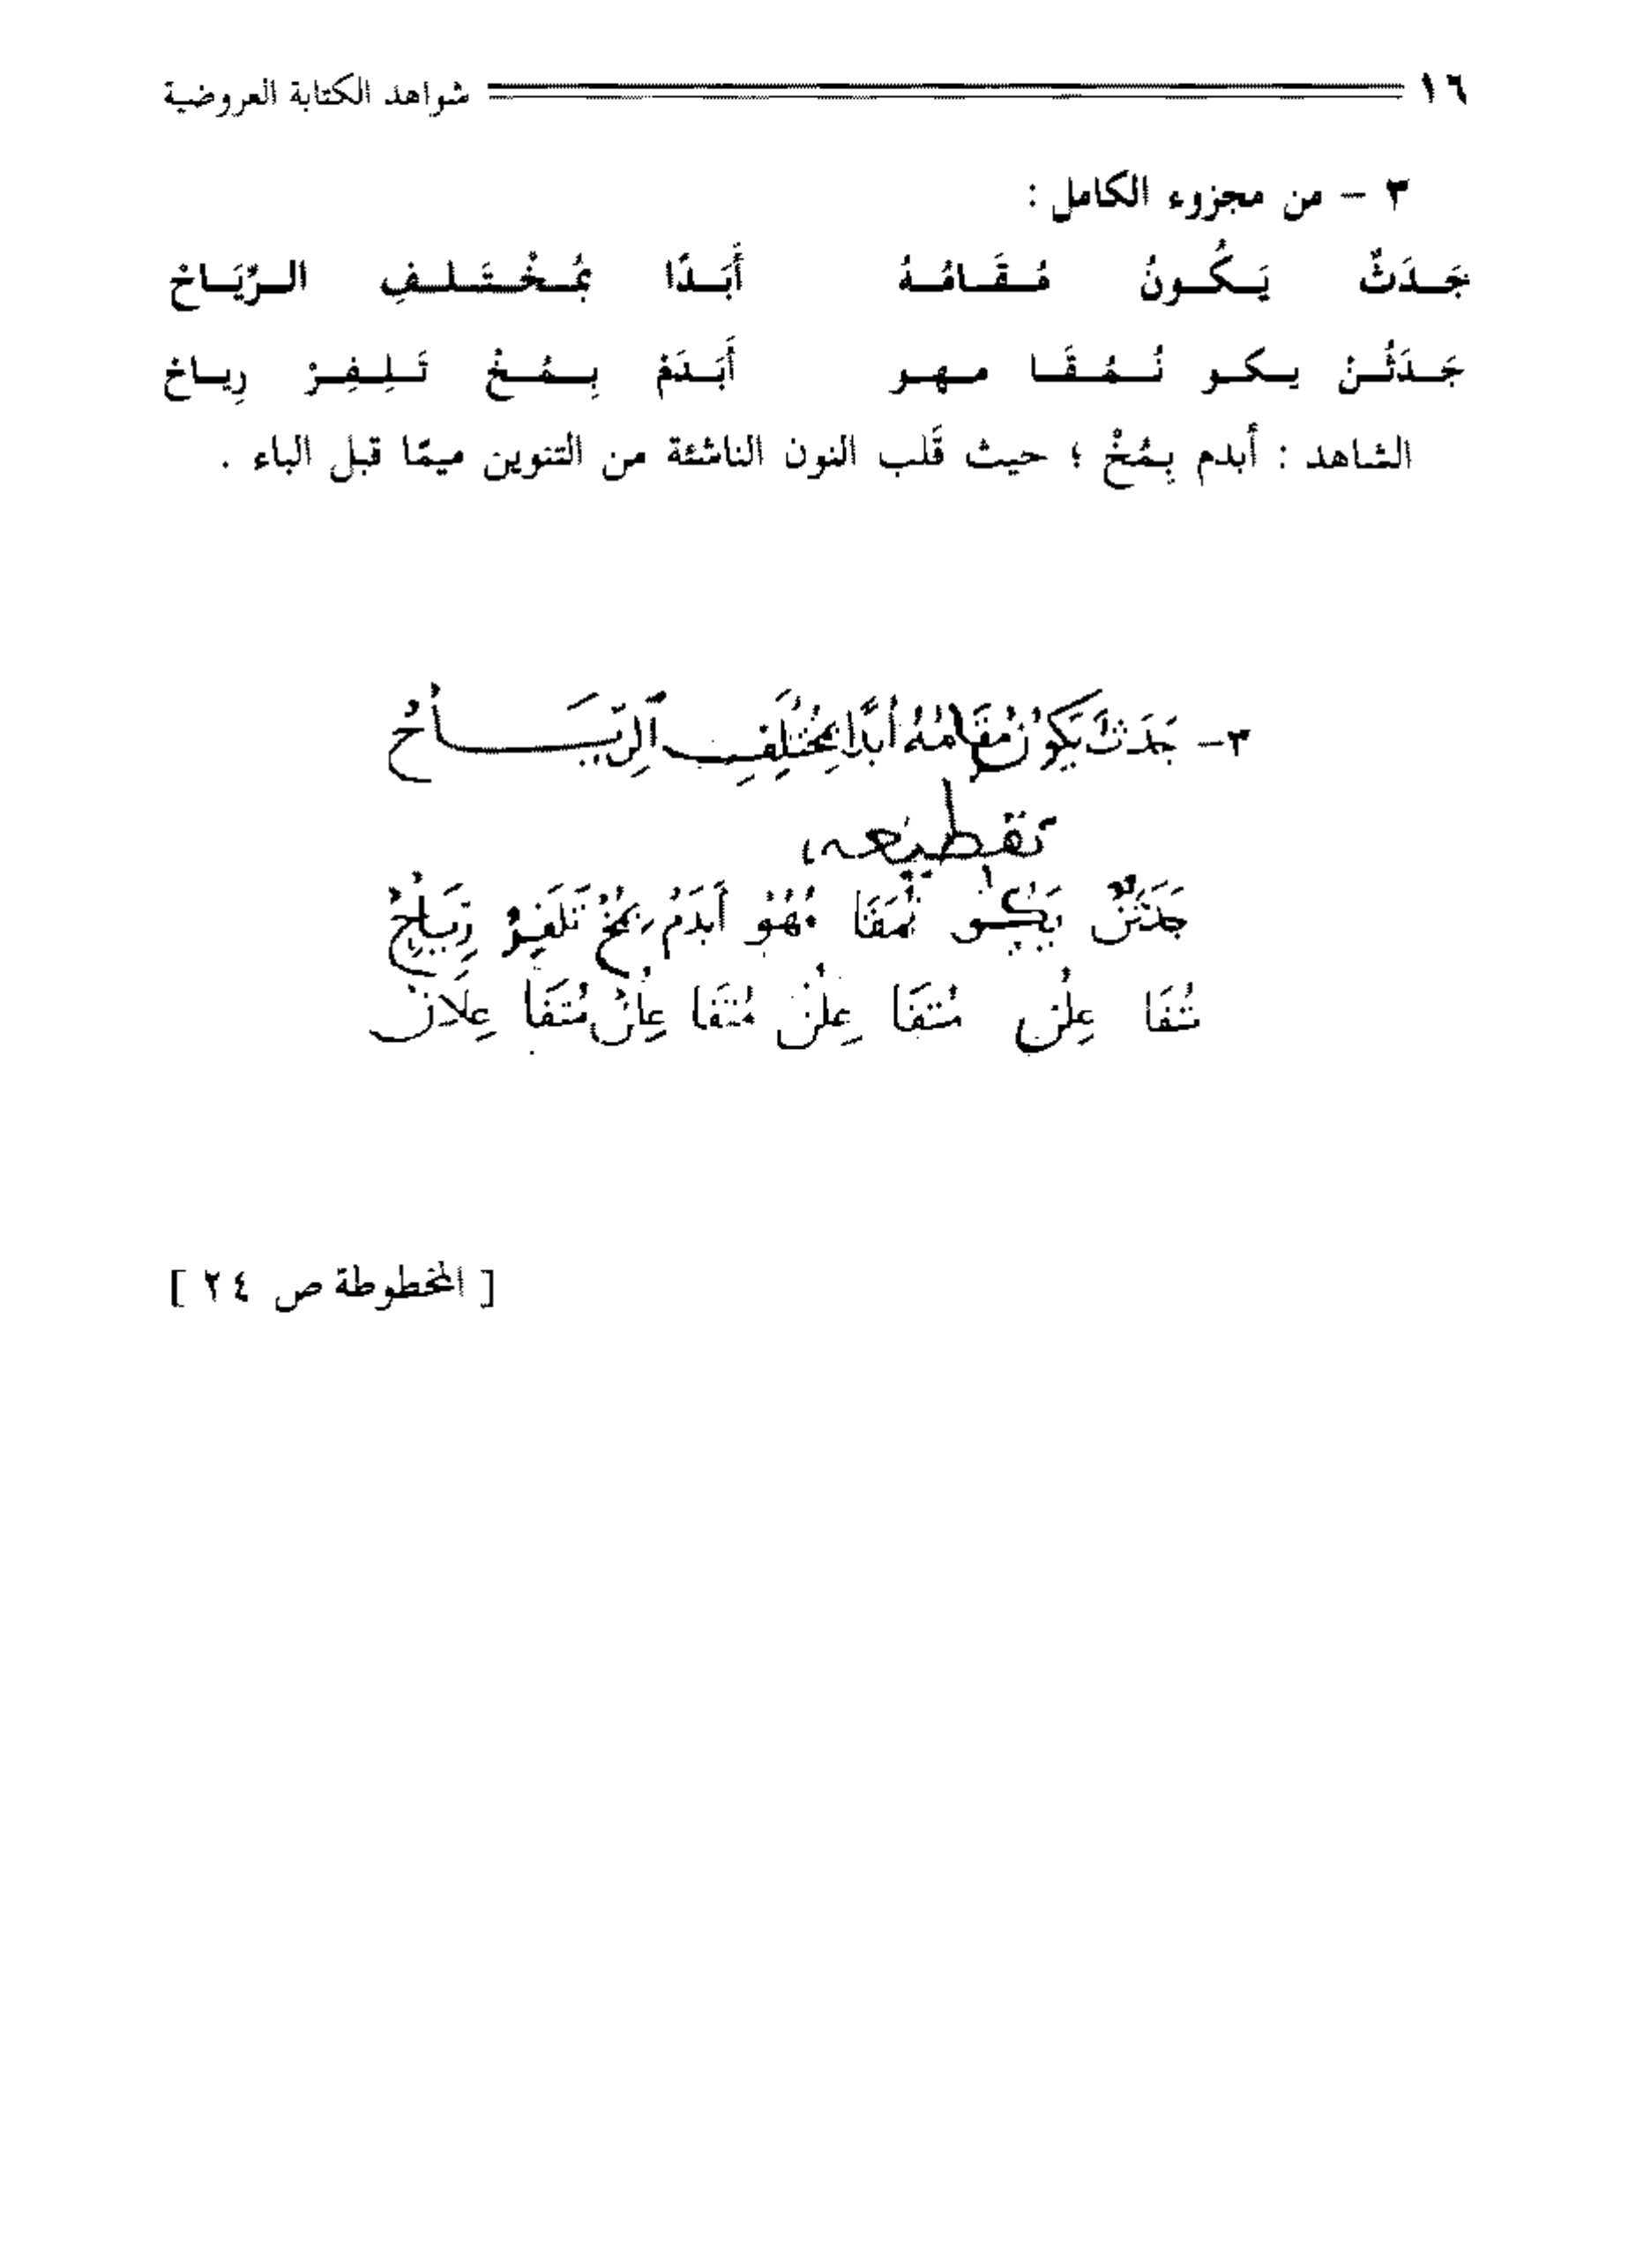 ١٦ شواهد الكتابة العروضية
٣ – من مجزوء الكامل :
جَـدَثٌ يَـكُـونُ مُـقَـامُـهُ أَبَـدًا بِمُـخْـتَـلـفِ الـرِّيَـاحْ
جَـدَثُـنْ يـكـو نُـمُـقَـا مـهـو أَبَـدَمْ بِـمُـخْ تَـلِـفِـرْ رِيـاحْ
الشاهد : أبدم بِمُخْ ؛ حيث قَلب النون الناشئة من التنوين ميمًا قبل الباء .
٣- جَدَثٌ يَكُونُ مُقَامُهُ أَبَدًا بِمُخْتَلِفِ ٱلرِّيَـــاحْ
تقطيعه،
جَدَثُنْ يَكُو نُمُقَا مُهُوْ أَبَدَمْ بِمُخْ تَلِفِرْ رِيَاحْ
مُتَفَا عِلُنْ مُتَفَا عِلُنْ مُتَفَا عِلُنْ مُتَفَا عِلَانْ
[ المخطوطة ص ٢٤ ]